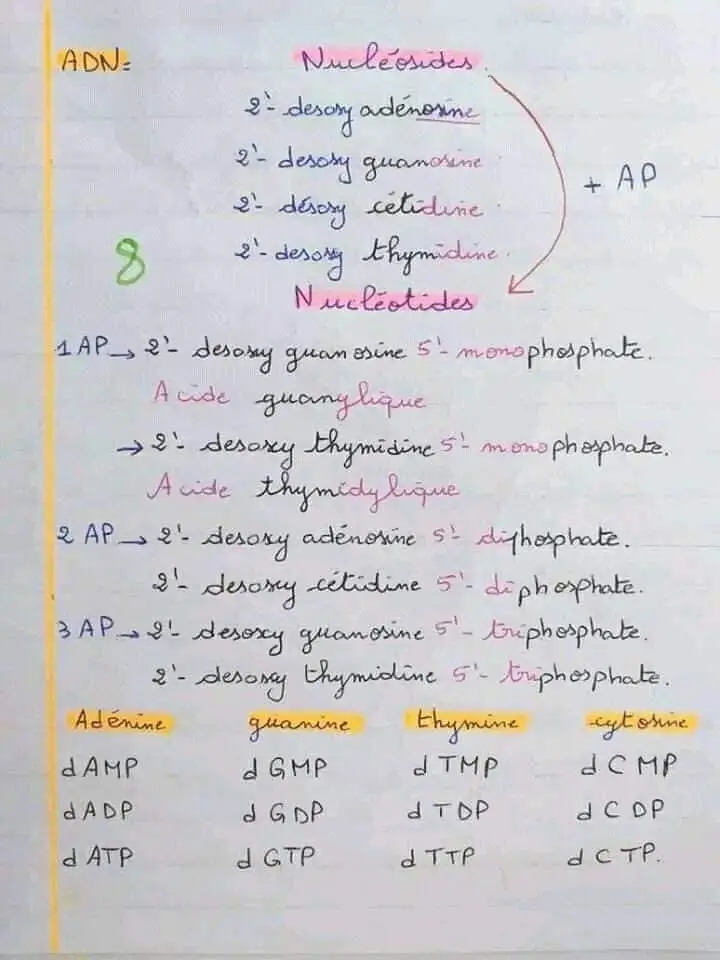 ADN= Nucléosides.
2'- desoxy adénosine
2'- desoxy guanosine
2'- désoxy cétidine
+ AP
2'- desoxy thymidine.
8
Nucléotides
1 AP → 2'- desoxy guanosine 5'- monophosphate.
Acide guanylique
→ 2'- desoxy thymidine 5'- monophosphate.
Acide thymidylique
2 AP → 2'- desoxy adénosine 5'- diphosphate.
2'- desoxy cétidine 5'- diphosphate.
3 AP → 2'- desoxy guanosine 5'- triphosphate.
2'- desoxy thymidine 5'- triphosphate.
Adénine guanine thymine cytosine
dAMP dGMP dTMP dCMP
dADP dGDP dTDP dCDP
dATP dGTP dTTP dCTP.